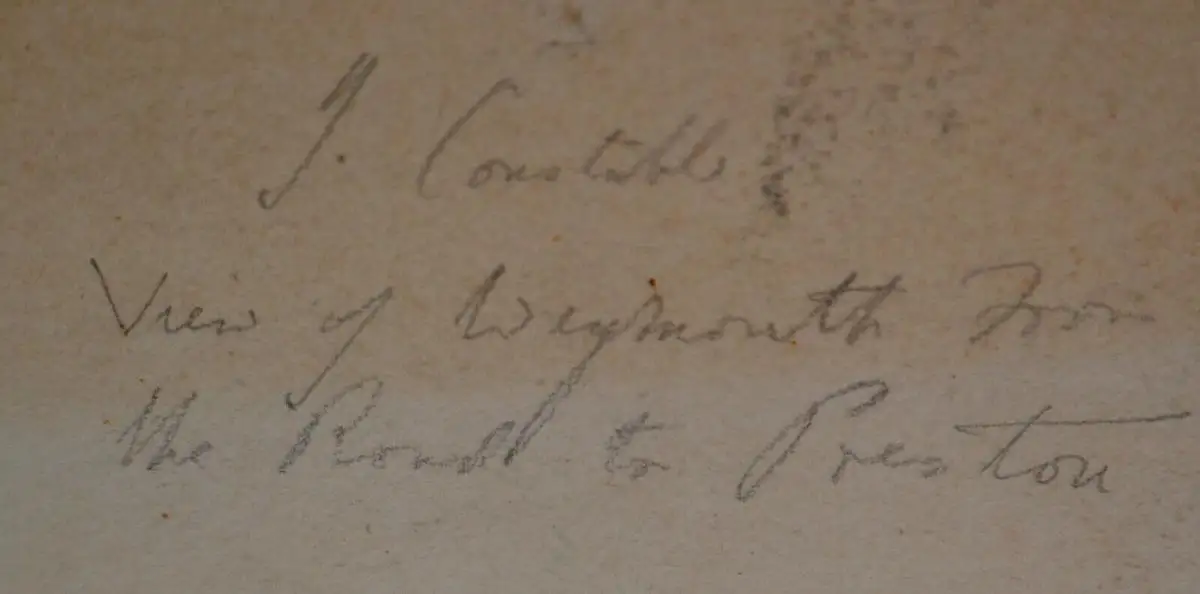 J. Constable
View of Weymouth From
the Road to Preston